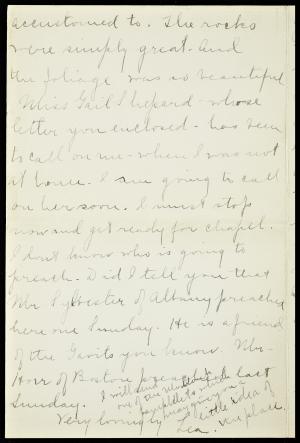 accustomed to. The rocks
were simply great. And
the foliage was so beautiful
Miss Gail Shepard - whose
letter you enclosed - has been
to call on me - when I was not
at home. I am going to call
on her soon. I must stop
now and get ready for chapel.
I don't know who is going to
preach. Did I tell you that
Mr Sylvester of Albany preached
here one Sunday. He is a friend
of the Gavits you know. Mr.
Horr of Boston preached last
Sunday.
Very lovingly
Lea.
I will send
one of our
pamphlets which
may give you a
little idea of
the place.